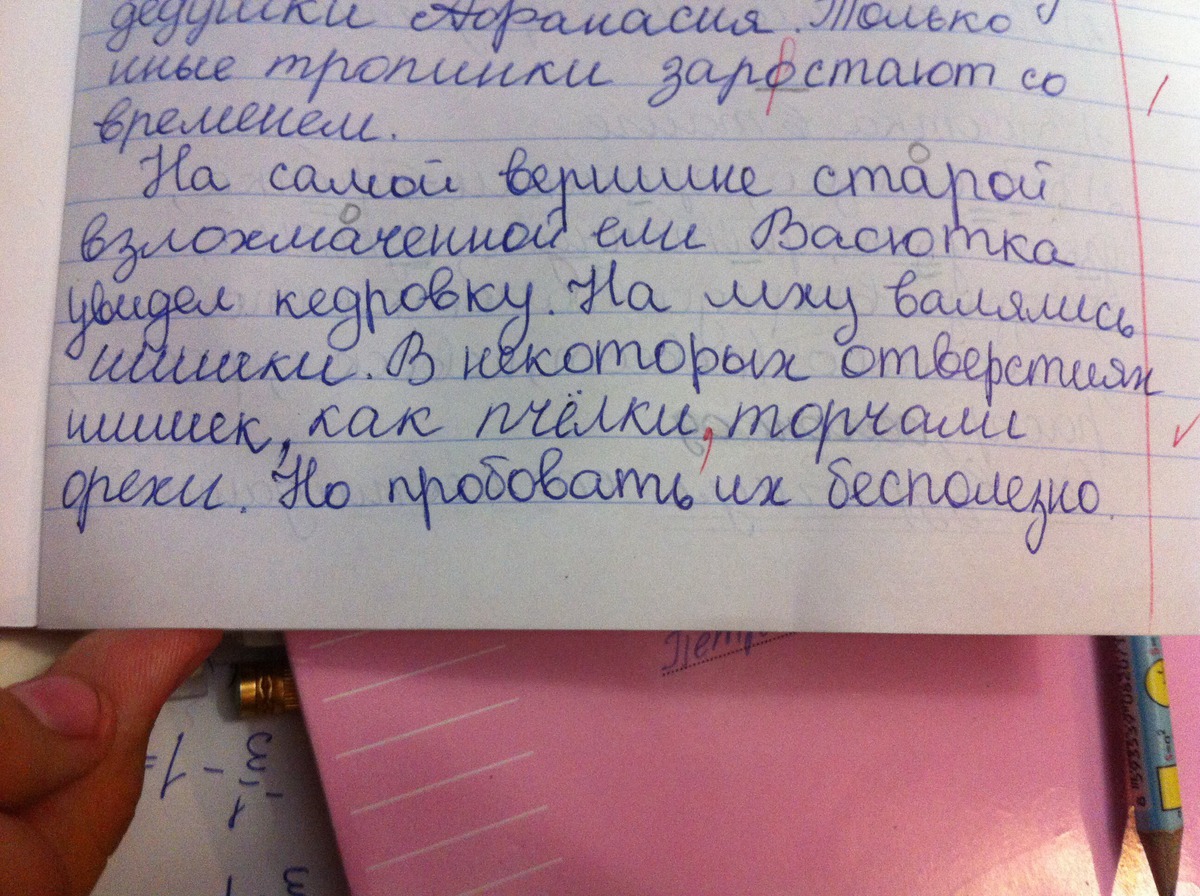 дедушки Афанасия. Только
иные тропинки заростают со
временем.
На самой вершине старой
взлохмаченной ели Васютка
увидел кедровку. На мху валялись
шишки. В некоторых отверстиях
шишек, как пчёлки, торчали
орехи. Но пробовать их бесполезно.
Петр
- 1 =